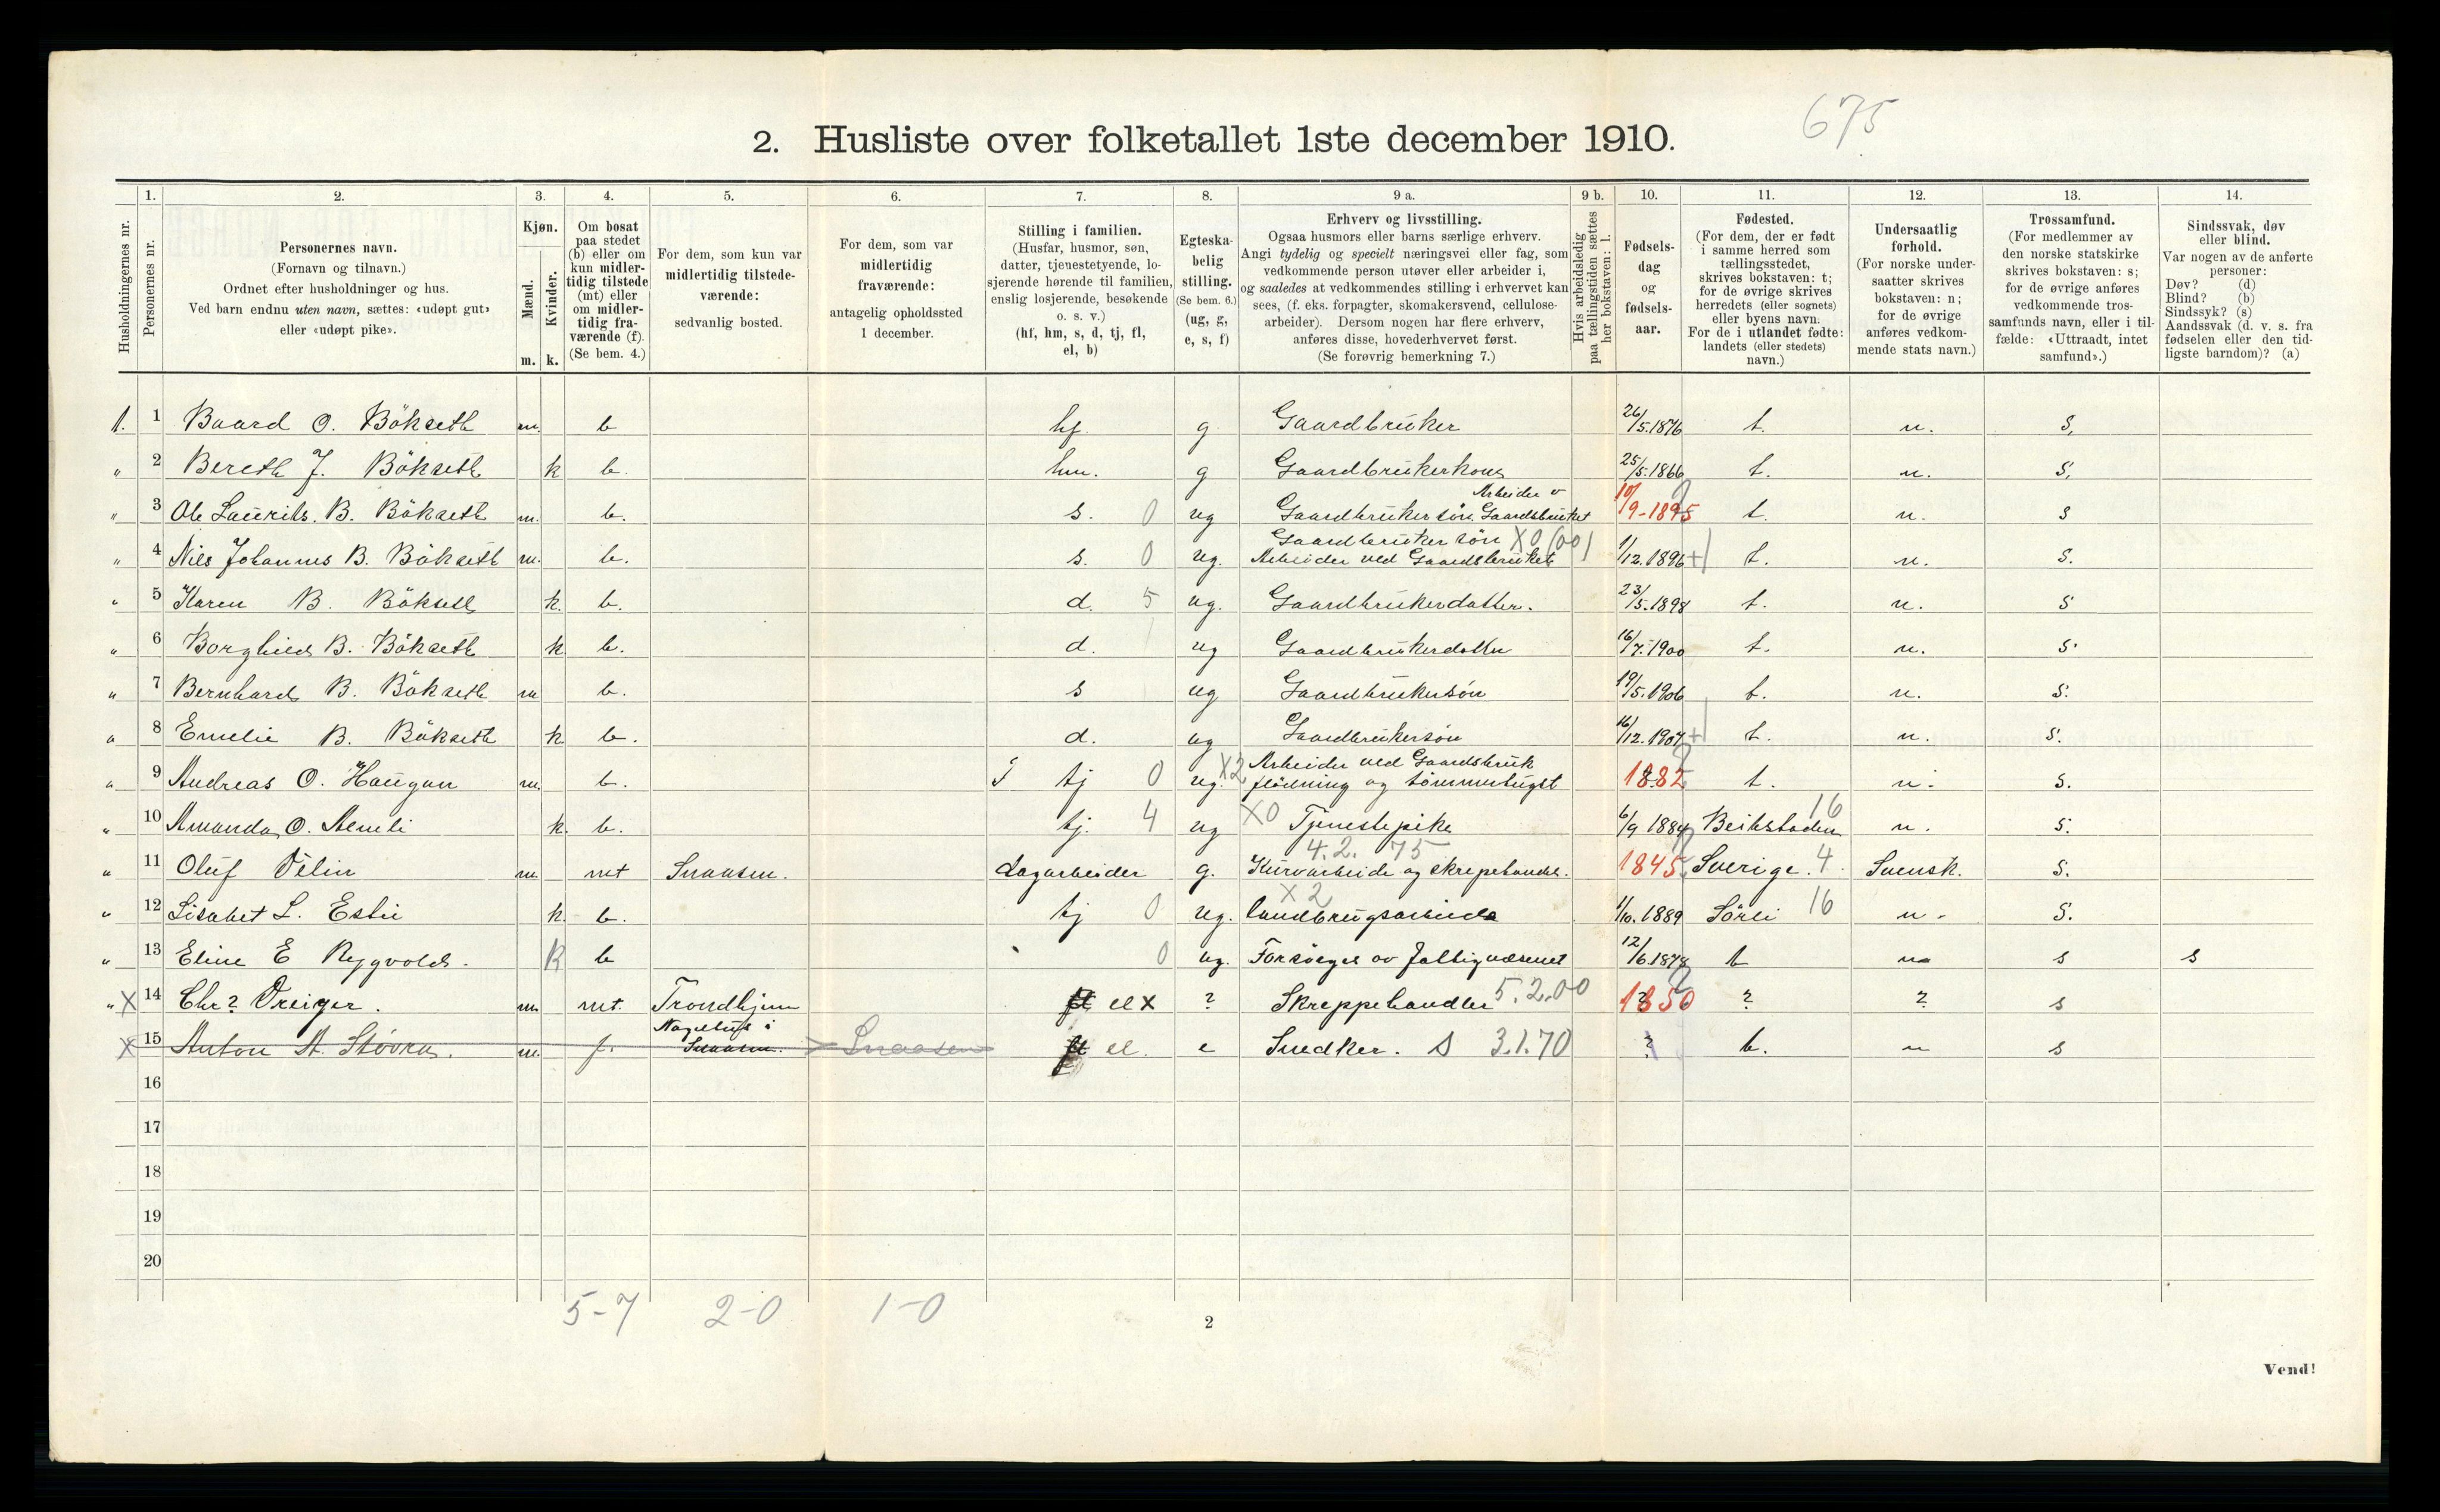 675
2. Husliste over folketallet 1ste december 1910.
1. 2. 3. 4. 5. 6. 7. 8. 9 a. 9 b. 10. 11. 12. 13. 14.
Husholdningernes nr.
Personernes nr.
Personernes navn.
(Fornavn og tilnavn.)
Ordnet efter husholdninger og hus.
Ved barn endnu uten navn, sættes: «udøpt gut»
eller «udøpt pike».
Kjøn.
Mænd.
Kvinder.
m. k.
Om bosat
paa stedet
(b) eller om
kun midler-
tidig tilstede
(mt) eller
om midler-
tidig fra-
værende (f).
(Se bem. 4.)
For dem, som kun var
midlertidig tilstede-
værende:
sedvanlig bosted.
For dem, som var
midlertidig
fraværende:
antagelig opholdssted
1 december.
Stilling i familien.
(Husfar, husmor, søn,
datter, tjenestetyende, lo-
sjerende hørende til familien,
enslig losjerende, besøkende
o. s. v.)
(hf, hm, s, d, tj, fl,
el, b)
Egteska-
belig
stilling.
(Se bem. 6.)
(ug, g,
e, s, f)
Erhverv og livsstilling.
Ogsaa husmors eller barns særlige erhverv.
Angi tydelig og specielt næringsvei eller fag, som
vedkommende person utøver eller arbeider i,
og saaledes at vedkommendes stilling i erhvervet kan
sees, (f. eks. forpagter, skomakersvend, cellulose-
arbeider). Dersom nogen har flere erhverv,
anføres disse, hovederhvervet først.
(Se forøvrig bemerkning 7.)
Hvis arbeidsledig
paa tællingstiden sættes
her bokstaven: l.
Fødsels-
dag
og
fødsels-
aar.
Fødested.
(For dem, der er født
i samme herred som
tællingsstedet,
skrives bokstaven: t;
for de øvrige skrives
herredets (eller sognets)
eller byens navn.
For de i utlandet fødte:
landets (eller stedets)
navn.)
Undersaatlig
forhold.
(For norske under-
saatter skrives
bokstaven: n;
for de øvrige
anføres vedkom-
mende stats navn.)
Trossamfund.
(For medlemmer av
den norske statskirke
skrives bokstaven: s;
for de øvrige anføres
vedkommende tros-
samfunds navn, eller i til-
fælde: «Uttraadt, intet
samfund».)
Sindssvak, døv
eller blind.
Var nogen av de anførte
personer:
Døv? (d)
Blind? (b)
Sindssyk? (s)
Aandssvak (d. v. s. fra
fødselen eller den tid-
ligste barndom)? (a)
1. 1 Baard O. Bökseth m. b hf. g Gaardbruker 26/5.1876 t. n. s,
" 2 Bereth J. Bökseth k b. hm. g Gaardbrukerkone 25/5.1866 t. n. s,
" 3 Ole Laurits. B. Bökseth m. b. s. 0 ug Gaardbruker sön Arbeider v Gaardsbruket 10/9-1895 t. n. s
" 4 Nils Johannes B. Bökseth m. b. s. 0 ug. Gaardbruker sön X0 (00) Arbeider ved Gaardsbruket 1/12.1896 + t. n. s.
" 5 Karen B. Bökseth k. b. d. 5 ug. Gaardbrukerdatter. 23/5.1898 t. n. s
" 6 Borghild B. Bökseth k b. d. ug Gaardbrukerdatter 16/7.1900 t. n. s.
" 7 Bernhard B. Bökseth m b. s ug Gaardbrukersön 19/5.1906 t. n. s.
" 8 Emelie B. Bökseth k b. d. ug Gaardbrukersön 16/12.1907 + t. n. s.
" 9 Andreas O. Haugan m. b. tj 0 ug. X2 Arbeider ved Gaardsbruk flödning og tömmerhugst 1882 t. n. s.
" 10 Amanda O. k. b. tj. 4 ug X0 Tjenestepike 6/9 1884 Beitstaden 16 n. s.
" 11 Oluf m mt Snaasen. Dagarbeider g. 4.2. 75 Kurvarbeide og skrepehandel. 1845 Sverige. 4 Svensk. s.
" 12 Lisabet L. Estie k. b. tj 0 ug. X2 landbrugsarbeide 1/10.1889 Sörli 16 n. s.
" 13 Eline E k b 0 ug. Forsörges av fattigvæsenet 12/6.1878 t n s s
" X 14 Chr? m mt. Trondhjem el x ? Skreppehandler 5.2.00 1850 ? ? s
X 15 Anton A. m. f. i Snaasen. Snaasen el. e Snedker. s 3.1.70 ? t. n s
16
17
18
19
20
5-7 2-0 1-0
2
Vend!